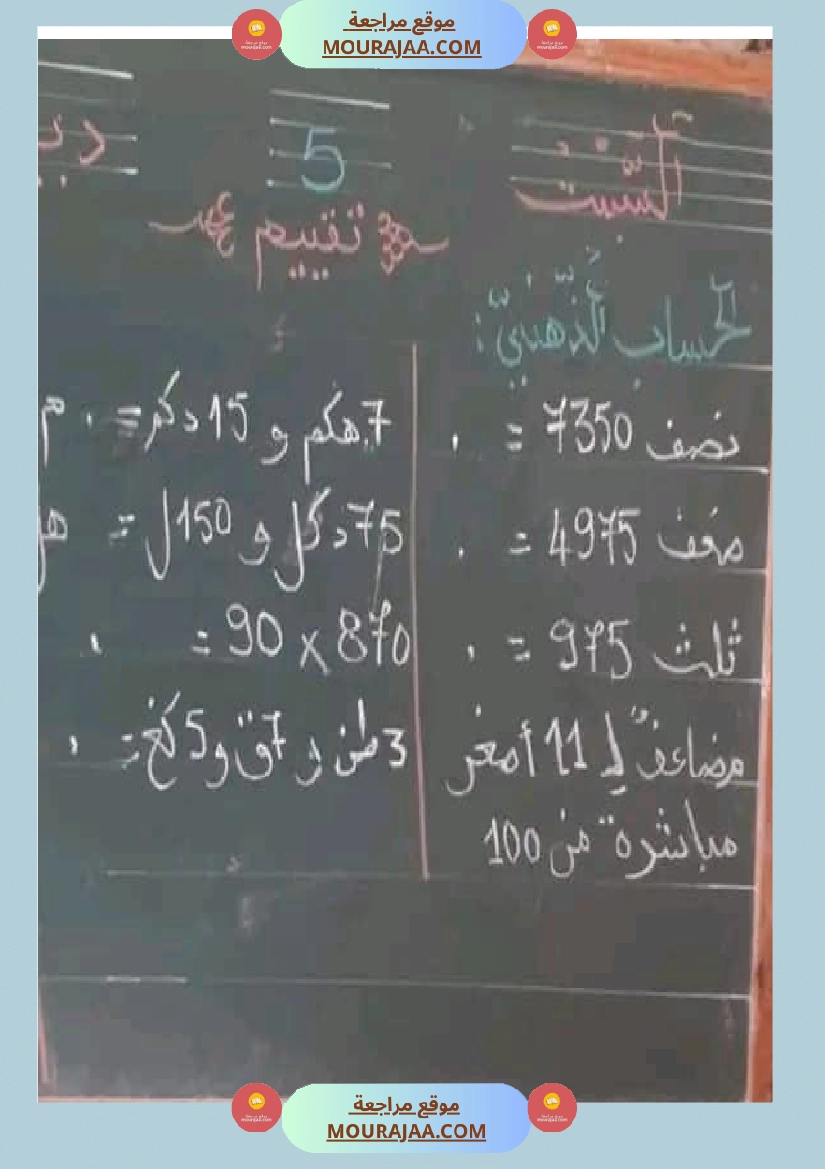 موقع مراجعة
MOURAJAA.COM
السبت
5
د
تقييم
الحساب الذّهنيّ:
نصف 7350 = .
ضعف 4975 = .
ثلث 975 = .
مضاعفٌ لـ 11 أصغر
مباشرة من 100
7 هكم و 15 دكم = . م
75 دكل و 150 ل = هل
870 x 90 = .
3 طن و 7 ق و 5 كغ = .
موقع مراجعة
MOURAJAA.COM